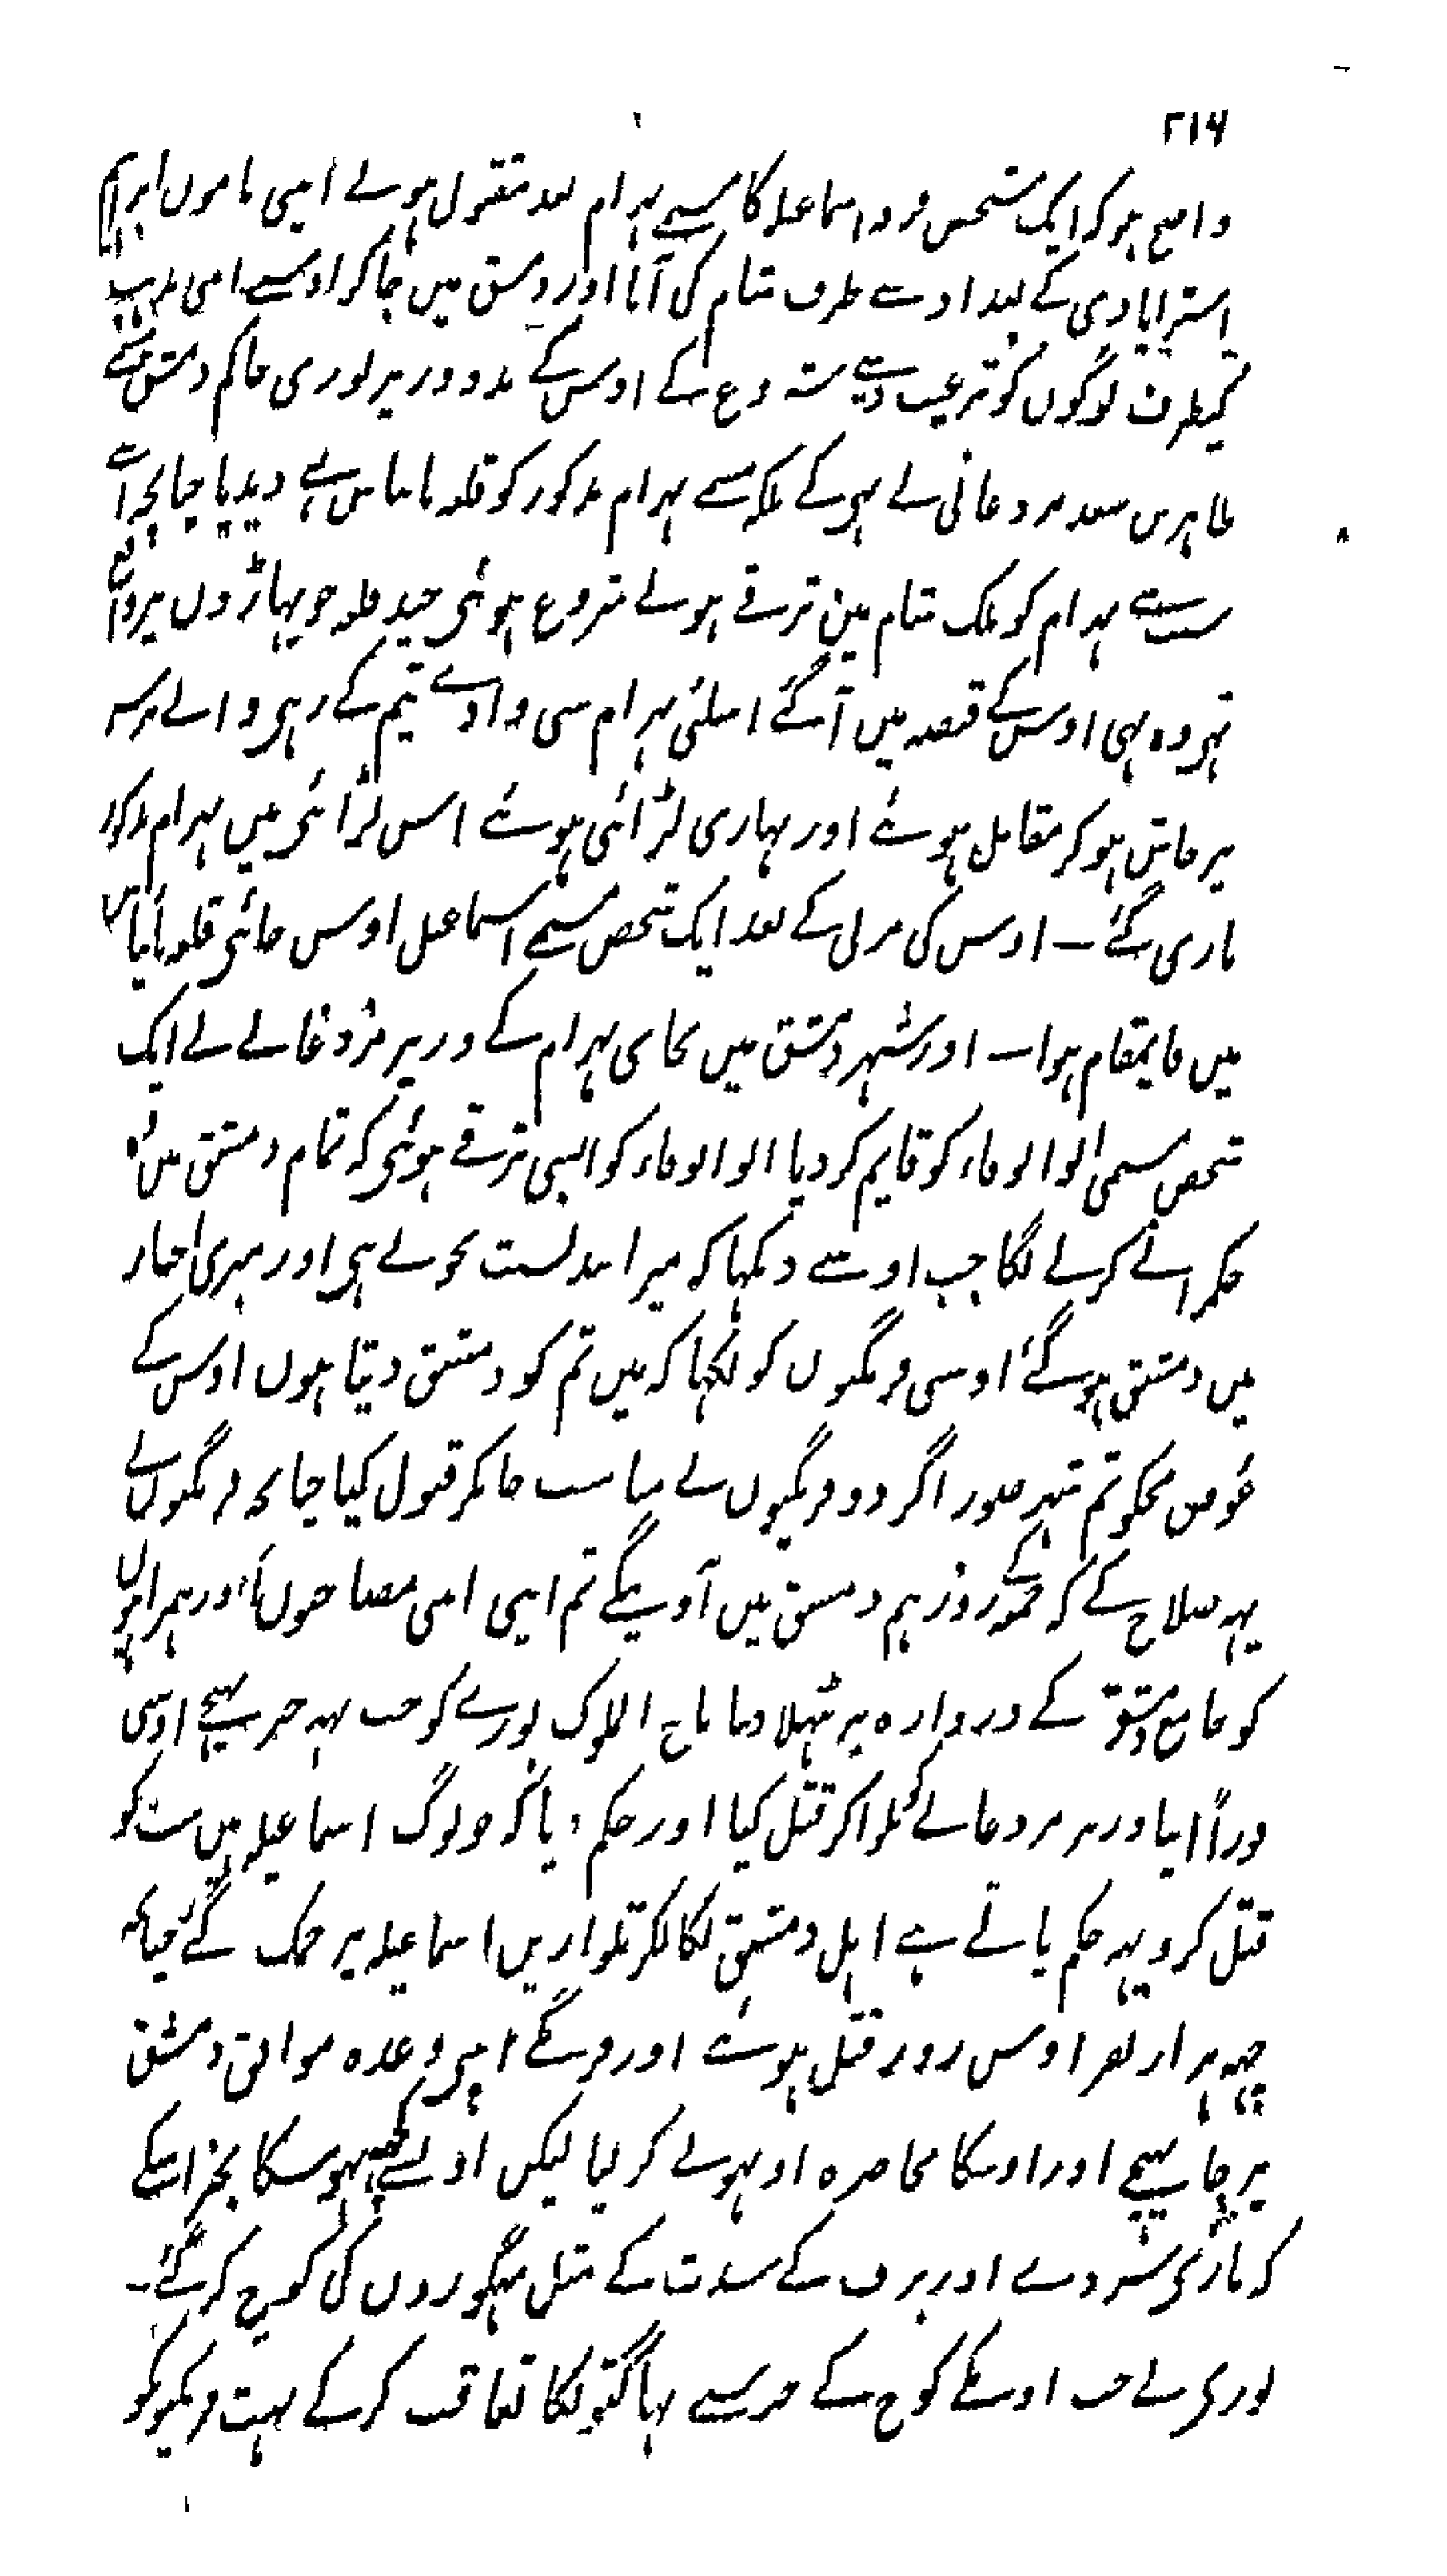 ۲۱۶
واضح ہو کہ ایک شخص فرقہ اسماعیلیہ کا مسمے بہرام بعد مقتول ہونے اپنی ماموں ابراہیم
استرابادی کے بغداد سے طرف شام کی آیا اور دمشق میں جا کر اوسنے اپنی مذہب
کیطرف لوگوں کو ترغیب دینے شروع کے اوس کے مدد وزیر بوری حاکم دمشق یعنے
طاہر بن سعد مزدغانی نے بہی کے بلکہ بہرام مذکور کو قلعہ بانیاس بہی دیدیا چنانچہ اسی
سبب سے بہرام کو ملک شام میں ترقے ہونے شروع ہوئی چند قلعہ جو پہاڑوں پر واقع
تہی وہ بہی اوس کے قبضہ میں آگئے اسلئی بہرام سی وادے تیم کے رہنی والے
پرخاش ہو کر مقابل ہوئے اور بہاری لڑائی ہوئے اس لڑائی میں بہرام مذکور
ماری گئے ۔ اوس کی مرنی کے بعد ایک شخص مسمے اسماعیل اوس جائی قلعہ بانیاس
میں قایمقام ہوا ۔ اور شہر دمشق میں بجای بہرام کے وزیر مزدغانے نے ایک
شخص مسمی ابو الوفاء کو قایم کر دیا ابو الوفاء کو ایسی ترقے ہوئی کہ تمام دمشق میں وہ
حکمرانے کرنے لگا جب اوسنے دیکہا کہ میرا بندبست بخوبے ہی اور میری اختیار
میں دمشق ہوگئے اوسی فرنگیوں کو لکہا کہ میں تم کو دمشق دیتا ہوں اوس کے
عوض مجکو تم شہر صور اگر دو فرنگیوں نے مناسب جانکر قبول کیا چنانچہ فرنگیوں نے
یہہ صلاح کے کہ جمعہ کے روز ہم دمشق میں آوینگے تم اپنی اپنی مصاحبوں اور ہمراہیوں
کو جامع دمشق کے دروازہ پر بٹہلا دینا تاج الملوک بورے کو جب یہہ خبر پہنچے اوسی
فوراً اپنا وزیر مزدغانے کو بلوا کر قتل کیا اور حکم دیا کہ جو لوگ اسماعیلیہ ہیں سب کو
قتل کرو یہہ حکم پاتے ہے اہل دمشق نکالکر تلواریں اسماعیلیہ پر جہک گئے چنانچہ
چہہ ہزار نفر اوس روز قتل ہوئے اور فرنگے اپنی وعدہ موافق دمشق
پر جا پہنچے اور اوسکا محاصرہ اونہوں نے کر لیا لیکن اونسے کچہہ نہوسکا بجز اسکے
کہ ماری سردے اور برف کے شدت کے مثل بہگوروں کی کوچ کر گئے ۔
بوری نے جب اونکے کوچ کے خبر سنے بہاگتونکا تعاقب کر کے بہت فرنگیونکو